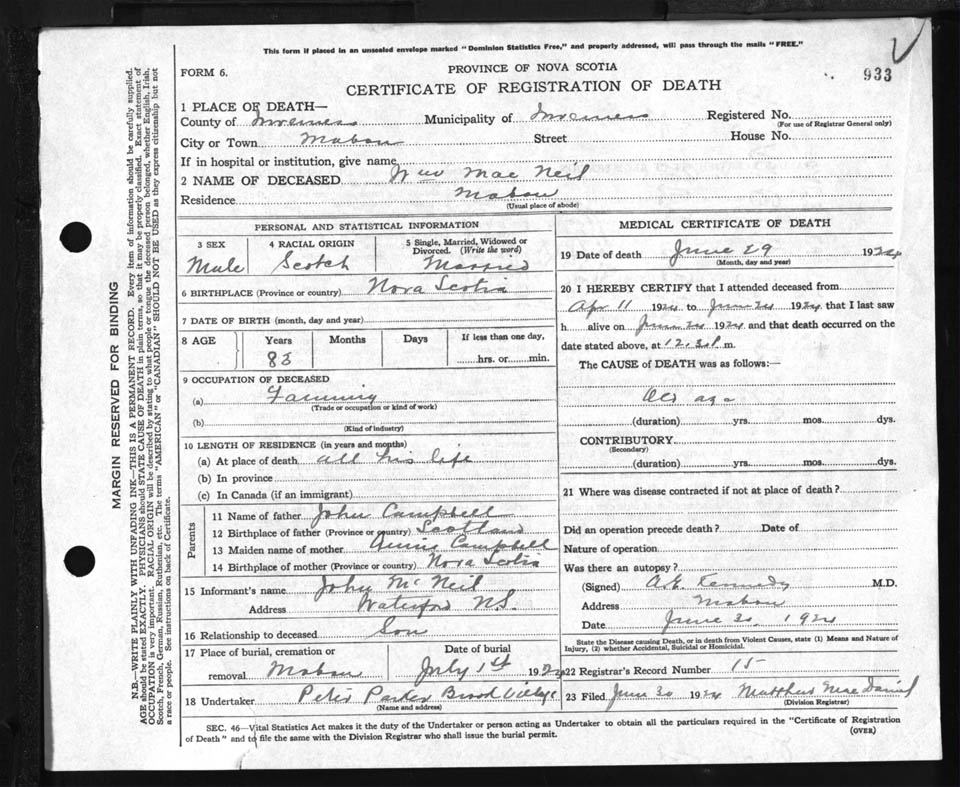 This form if placed in an unsealed envelope marked "Dominion Statistics Free," and properly addressed, will pass through the mails "FREE."
FORM 6.
PROVINCE OF NOVA SCOTIA
933
CERTIFICATE OF REGISTRATION OF DEATH
1 PLACE OF DEATH—
County of Inverness Municipality of Inverness Registered No.
(For use of Registrar General only)
City or Town Mabou Street House No.
If in hospital or institution, give name
2 NAME OF DECEASED Mac Neil
Residence Mabou
(Usual place of abode)
PERSONAL AND STATISTICAL INFORMATION
3 SEX
Male
4 RACIAL ORIGIN
Scotch
5 Single, Married, Widowed or Divorced. (Write the word)
Married
6 BIRTHPLACE (Province or country) Nova Scotia
7 DATE OF BIRTH (month, day and year)
8 AGE Years Months Days If less than one day,
83 hrs. or min.
9 OCCUPATION OF DECEASED
(a) Farming
(Trade or occupation or kind of work)
(b)
(Kind of industry)
10 LENGTH OF RESIDENCE (in years and months)
(a) At place of death all his life
(b) In province
(c) In Canada (if an immigrant)
Parents
11 Name of father John Campbell
12 Birthplace of father (Province or country) Scotland
13 Maiden name of mother Annie Campbell
14 Birthplace of mother (Province or country) Nova Scotia
15 Informant's name John McNeil
Address Waterford N.S.
16 Relationship to deceased Son
17 Place of burial, cremation or removal Mabou
Date of burial
July 1st 1924
18 Undertaker Peter Parker Brook Village
(Name and address)
MEDICAL CERTIFICATE OF DEATH
19 Date of death June 29 1924
(Month, day and year)
20 I HEREBY CERTIFY that I attended deceased from
Apr 11 1924 to June 24 1924 that I last saw
h alive on June 24 1924 and that death occurred on the
date stated above, at m.
The CAUSE of DEATH was as follows:—
Old age
(duration) yrs. mos. dys.
CONTRIBUTORY
(Secondary)
(duration) yrs. mos. dys.
21 Where was disease contracted if not at place of death?
Did an operation precede death? Date of
Nature of operation
Was there an autopsy?
(Signed) A.E. Kennedy M.D.
Address Mabou
Date June 30 1924
State the Disease causing Death, or in death from Violent Causes, state (1) Means and Nature of
Injury, (2) whether Accidental, Suicidal or Homicidal.
22 Registrar's Record Number 15
23 Filed June 30 1924 Matthew
(Division Registrar)
SEC. 46—Vital Statistics Act makes it the duty of the Undertaker or person acting as Undertaker to obtain all the particulars required in the "Certificate of Registration
of Death" and to file the same with the Division Registrar who shall issue the burial permit.
(OVER)
MARGIN RESERVED FOR BINDING
N.B.—WRITE PLAINLY WITH UNFADING INK—THIS IS A PERMANENT RECORD. Every item of information should be carefully supplied.
AGE should be stated EXACTLY. PHYSICIANS should STATE CAUSE OF DEATH in plain terms, so that it may be properly classified. Exact statement of
OCCUPATION is very important. RACIAL ORIGIN will be described by stating to what people or tongue the deceased person belonged, whether English, Irish,
Scotch, French, German, Russian, Ruthenian, etc. The terms "AMERICAN" or "CANADIAN" SHOULD NOT BE USED as they express citizenship but not
a race or people. See instructions on back of Certificate.